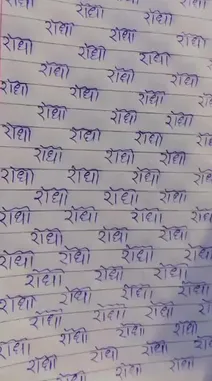 राधा राधा राधा
राधा राधा राधा
राधा राधा राधा
राधा राधा राधा
राधा राधा राधा
राधा राधा राधा
राधा राधा राधा
राधा राधा राधा
राधा राधा राधा
राधा राधा राधा
राधा राधा राधा
राधा राधा राधा
राधा राधा राधा
राधा राधा राधा
राधा राधा राधा राधा
राधा राधा राधा
राधा राधा राधा राधा
राधा राधा राधा
राधा राधा राधा